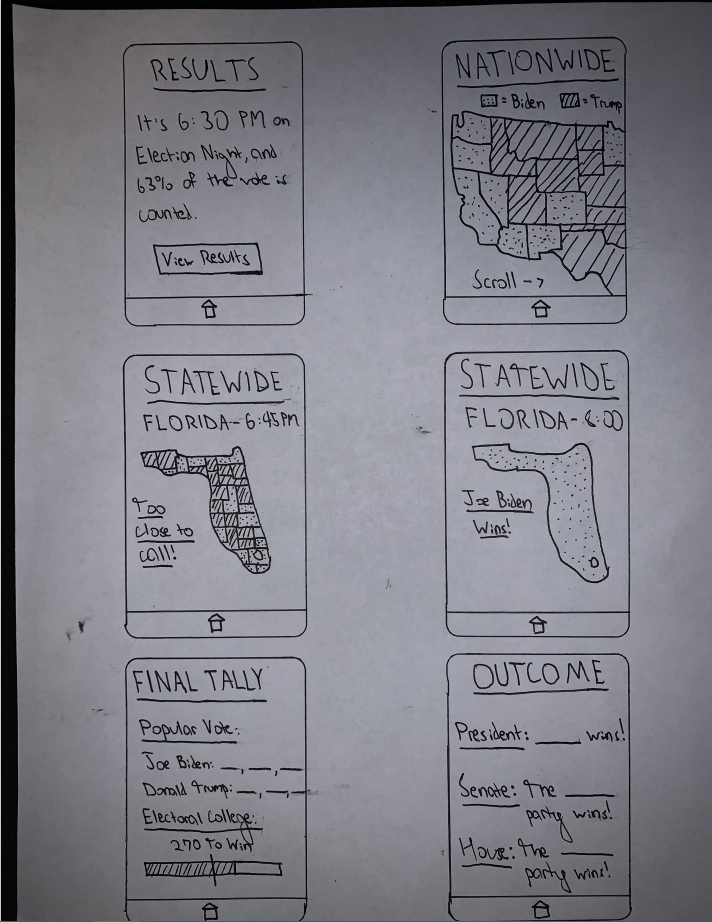 RESULTS
It's 6:30 PM on
Election Night, and
63% of the vote is
counted.
View Results
NATIONWIDE
= Biden = Trump
Scroll ->
STATEWIDE
FLORIDA - 6:45PM
Too
close to
call!
STATEWIDE
FLORIDA - 8:00
Joe Biden
Wins!
FINAL TALLY
Popular Vote:
Joe Biden: __,__,__
Donald Trump: __,__,__
Electoral College:
270 To Win
OUTCOME
President: ____ wins!
Senate: The ____
party wins!
House: The ____
party wins!